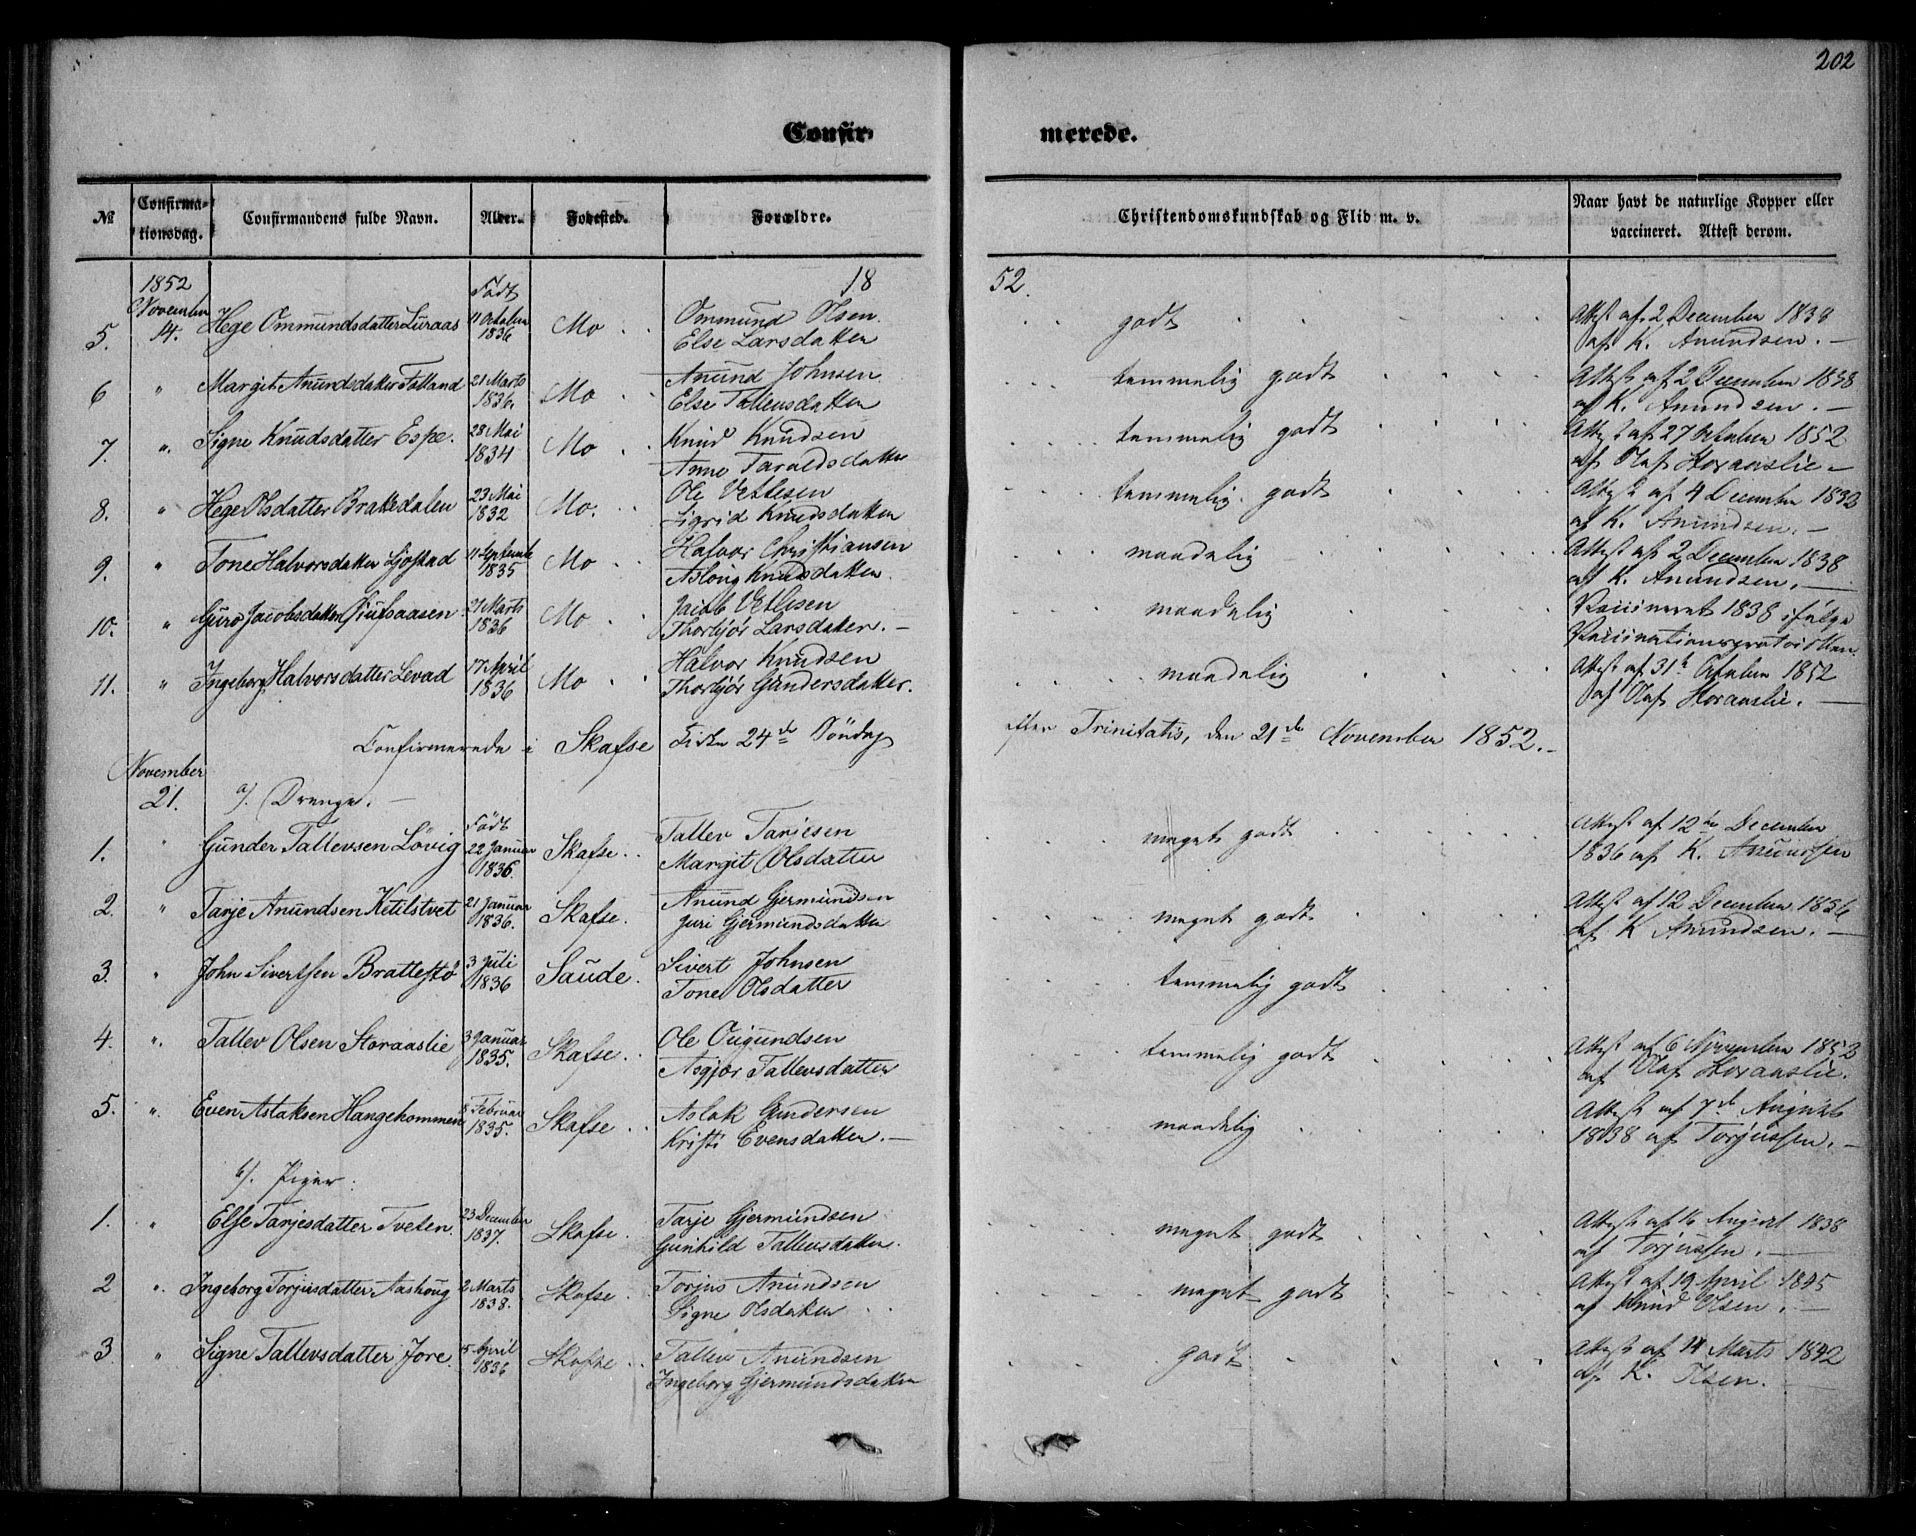 202
Confir- merede.
№ Confirma-tionsdag. Confirmandens fulde Navn. Alder. Fødested. Forældre. Christendomskundskab og Flid m. v. Naar havt de naturlige Kopper eller vaccineret. Attest derom.
1852 18 52.
November Født
5. 14. Hege Ommundsdatter Luraas 11 October 1836 Mo Ommund Olsen godt Attest af 2 December 1838
Else Larsdatter af K. Anundsen.
6 " Margit Anundsdatter Folland 21 Marts 1836. Mo Anund Johnsen temmelig godt Attest af 2 December 1838
Else Tallevsdatter af K. Anundsen.
7. " Signe Knudsdatter Espe. 28 Mai 1834 Mo Knud Knudsen temmelig godt Attest af 27 October 1852
Anne Taraldsdatter af Olaf Storaaslie
8. " Hege Olsdatter Brakedalen 23 Mai 1832 Mo. Ole Vetlesen temmelig godt Attest af 4 December 1832
Sigrid Knudsdatter af K. Anundsen.
9. " Tone Halvorsdatter Ljosstad 11 Septembr 1835 Mo Halvor Christiansen maadelig Attest af 2 December 1838
Asloug Knudsdatter. af K. Anundsen.
10. " Guro Jacobsdatter 21 Marts 1836 Mo Jacob Vetlesen maadelig Vaccineret 1838 ifølge
Thorbjør Larsdatter. Vaccinationsprotocollen.
11. " Ingeborg Halvorsdatter Levad 17 April 1836 Mo Halvor Knudsen maadelig Attest af 31te October 1852
Thorbjør Gundersdatter. af Olaf Storaaslie.
Confirmerede i Skafse Kirke 24de Søndag efter Trinitatis, den 21de November 1852.
November
21. a). Drenge.
Født
1. " Gunder Tallevsen Løvig 22 Januar 1836. Skafse. Tallev Tarjesen meget godt Attest af 12te December
Margit Olsdatter 1836 af K. Anundsen
2. " Tarje Anundsen Ketilstvet 21 Januar 1836. Skafse. Anund Gjermundsen meget godt Attest af 12 December 1836
Juri Gjermundsdatter af K Anundsen.
3. " John Sivertsen Brattestø 3 Juli 1836 Saude. Sivert Johnsen temmelig godt
Tone Olsdatter
4. " Tallev Olsen Storaaslie 3 Januar 1835. Skafse. Ole Ougundsen temmelig godt Attest af 6 November 1852
Asgjør Tallevsdatter af Olaf Storaaslie.
5. " Even Aslaksen Hangehommen 8 Februar 1835. Skafse Aslak Gundersen maadelig Attest af 7de August
Kristi Evensdatter. 1838 af Torjussen.
b). Piger.
1. " Else Tarjesdatter Tveten 23 December 1837. Skafse. Tarje Gjermundsen meget godt Attest af 16 August 1838
Gunhild Tallevsdatter. af Torjussen.
2 " Ingeborg Torjusdatter Aashoug 2 Marts 1838. Skafse Torjus Anundsen meget godt Attest af 19 April 1845
Signe Olsdatter af Knud Olsen.
3 " Signe Tallevsdatter Jore. 5 April 1836 Skafse Tallev Anundsen godt Attest af 14 Marts 1842
Ingeborg Gjermundsdatter af K. Olsen.